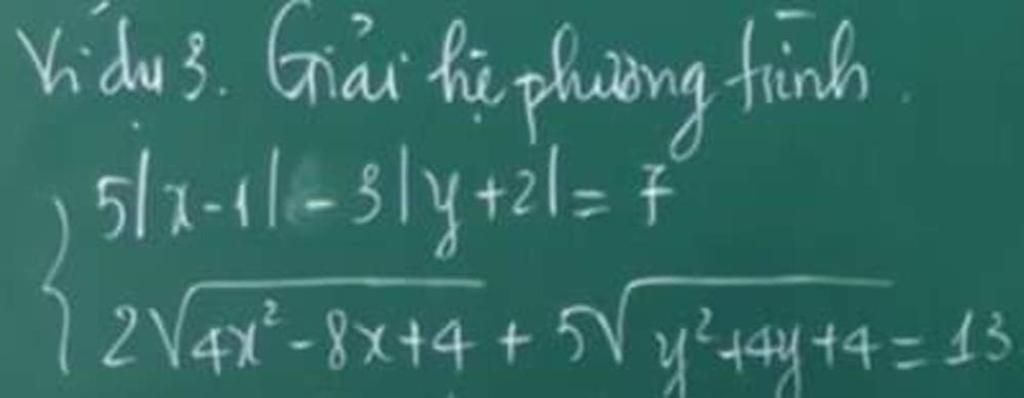 Ví dụ 3. Giải hệ phương trình.
5|x-1| - 3|y+2| = 7
2√(4x²-8x+4) + 5√(y²+4y+4) = 13